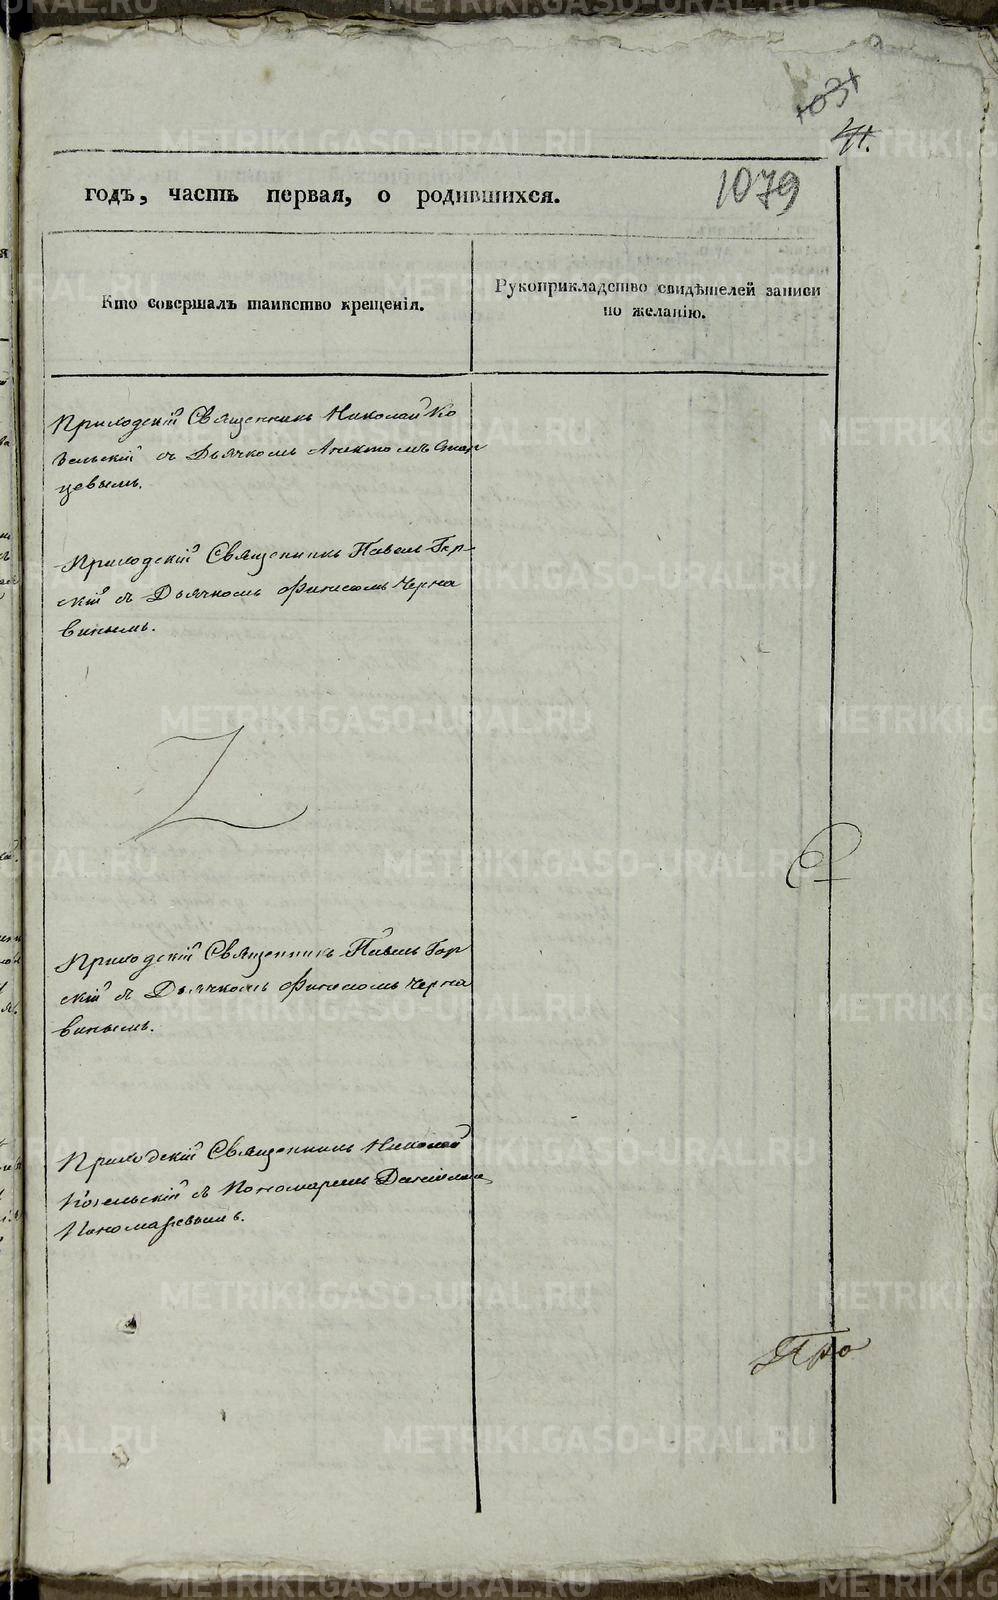 1031
41.
1079
годъ, часть первая, о родившихся.
Кто совершалъ таинство крещенія.
Рукоприкладство свидѣтелей записи
по желанію.
Приходскій Священникъ Николай Ко
зельскій съ Дьячкомъ Аниктомъ Стар
цевымъ.
Приходскій Священникъ Павелъ Гор
скій съ Дьячкомъ Финесомъ Черна
винымъ.
Приходскій Священникъ Павелъ Гор
скій съ Дьячкомъ Финесомъ Черна
винымъ.
Приходскій Священникъ Николай
Козельскій съ Пономаремъ Даніиломъ
Пономаревымъ.
Про
METRIKI.GASO-URAL.RU